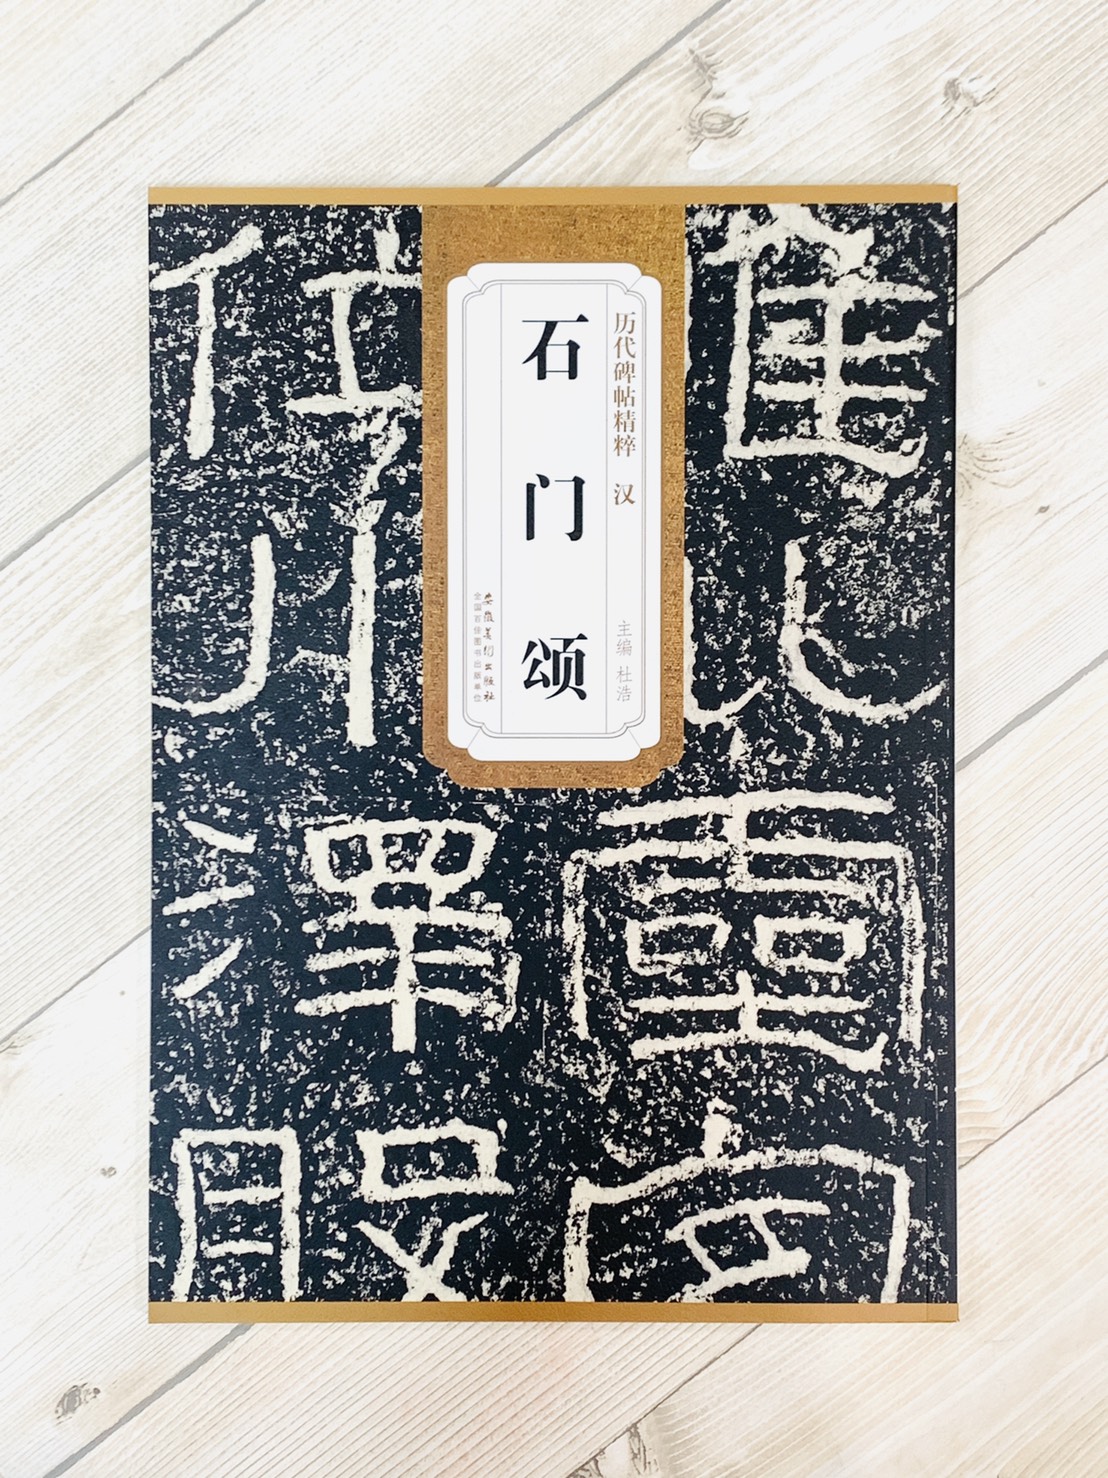 惟巛靈定
位川澤股
历代碑帖精粹 汉
主编 杜浩
石门颂
安徽美术出版社
全国百佳图书出版单位